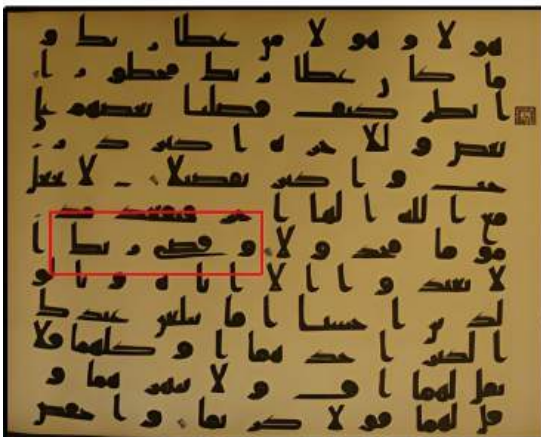 هولا و هولا من عطا ربك و
ما كان عطا ربك محظورا
انظر كيف فضلنا بعضهم على
بعض وللاخره اكبر در
جت و اكبر تفضيلا لا تجعل
مع الله الها اخر فتقعد مذ
موما مخذولا وقضى ربك ا
لا تعبدوا الا اياه وبالو
لدين احسنا اما يبلغن عندك
الكبر احدهما او كلهما فلا
تقل لهما اف ولا تنهرهما و
قل لهما قولا كريما واخفض